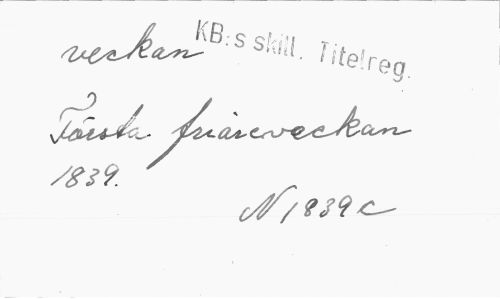 veckan
KB:s skill. Titelreg.
Första friareveckan
1839.
N 1839 c